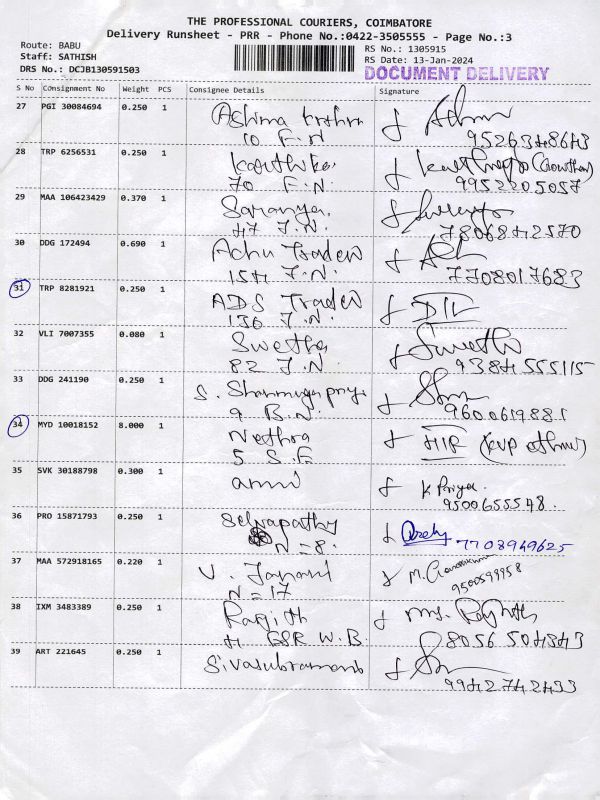 THE PROFESSIONAL COURIERS, COIMBATORE
Delivery Runsheet - PRR - Phone No.:0422-3505555 - Page No.:3
Route: BABU
Staff: SATHISH
DRS No.: DCJB130591503
RS No.: 1305915
RS Date: 13-Jan-2024
DOCUMENT DELIVERY
S No Consignment No Weight PCS Consignee Details Signature
27 PGI 30084694 0.250 1 Ashima
10 F.N
28 TRP 6256531 0.250 1 Karthika
70 F.N. 9952205057
29 MAA 106423429 0.370 1 Saranya
47 F.N. 7806842570
30 DDG 172494 0.690 1 Achu Trader
154 F.N. 7708017683
31 TRP 8281921 0.250 1 ADS Trader DIL
136 F.N.
32 VLI 7007355 0.080 1 Swetha Swetha
82 F.N. 9384555115
33 DDG 241190 0.250 1 S. Shanmugapriya
9 B.N. 9600619881
34 MYD 10018152 8.000 1 Nethra
5 S.F
35 SVK 30188798 0.300 1 K Priya
9500655548
36 PRO 15871793 0.250 1 Selvapathy
N=8. 7708949625
37 MAA 572918165 0.220 1 V.
N=17 9500599958
38 IXM 3483389 0.250 1 Ragith
4 GSR W.B. 8056504343
39 ART 221645 0.250 1 Sivasubramani
9942742433